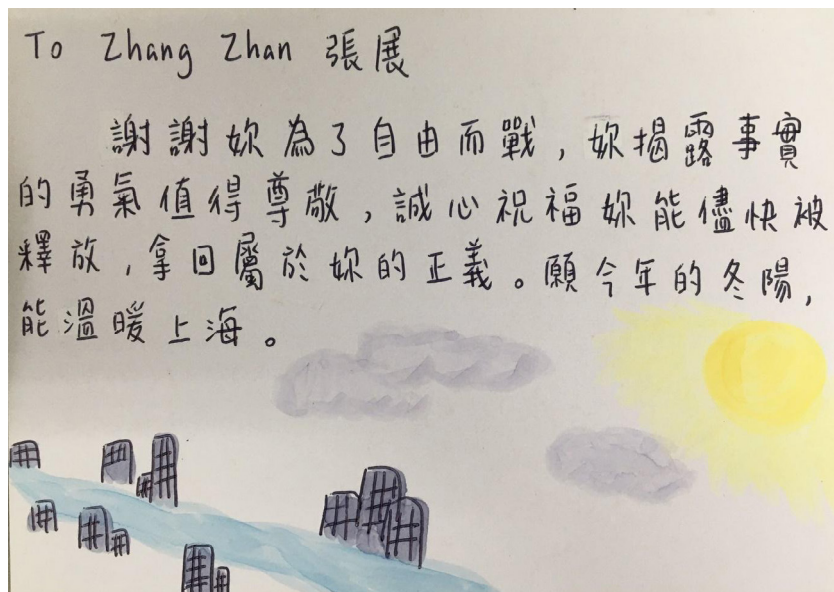 To Zhang Zhan 張展
謝謝妳為了自由而戰，妳揭露事實
的勇氣值得尊敬，誠心祝福妳能儘快被
釋放，拿回屬於妳的正義。願今年的冬陽，
能溫暖上海。